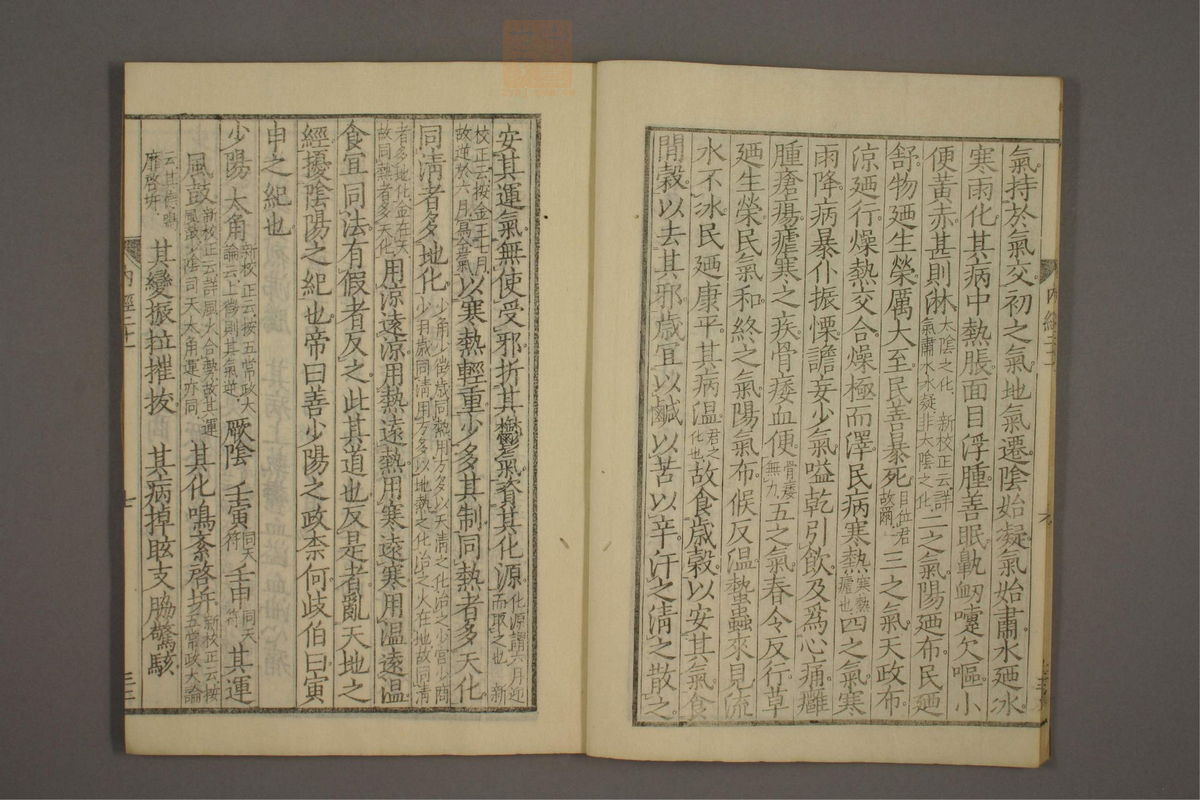 氣持於氣交初之氣地氣遷陰始凝氣始肅水廼冰
寒雨化其病中熱脹面目浮腫善眠鼽衂嚏欠嘔小
便黃赤甚則淋太陰之化新校正云詳氣肅水水凝非太陰之化二之氣陽廼布民廼
舒物廼生榮厲大至民善暴死臣位君故爾三之氣天政布
涼廼行燥熱交合燥極而澤民病寒熱寒熱瘧也四之氣寒
雨降病暴仆振慄譫妄少氣嗌乾引飲及爲心痛癰
腫瘡瘍瘧寒之疾骨痿血便骨痿無力五之氣春令反行草
廼生榮民氣和終之氣陽氣布候反温蟄蟲來見流
水不冰民廼康平其病温君之化也故食歲穀以安其氣食
間穀以去其邪歲宜以鹹以苦以辛汗之淸之散之
安其運氣無使受邪折其鬱氣資其化源化源謂六月迎而取之也新
校正云按金王七月故逆於六月瀉金氣以寒熱輕重少多其制同熱者多天化
同淸者多地化少角少徵歲同熱用方多以天淸之化治之少宮少商少羽歲同淸用方多以地熱之化治之火在地故同淸
者多地化金在天故同熱者多天化用涼遠涼用熱遠熱用寒遠寒用温遠温
食宜同法有假者反之此其道也反是者亂天地之
經擾陰陽之紀也帝曰善少陽之政柰何歧伯曰寅
申之紀也
少陽 太角新校正云按五常政大論云上徵則其氣逆厥陰 壬寅同天符壬申同天符其運
風鼓新校正云詳風火合勢故其運風鼓少陰司天太角運亦同其化鳴紊啓坼新校正云按五常政大論
云其德鳴靡啓坼其變振拉摧拔 其病掉眩支脇驚駭
內經二十一